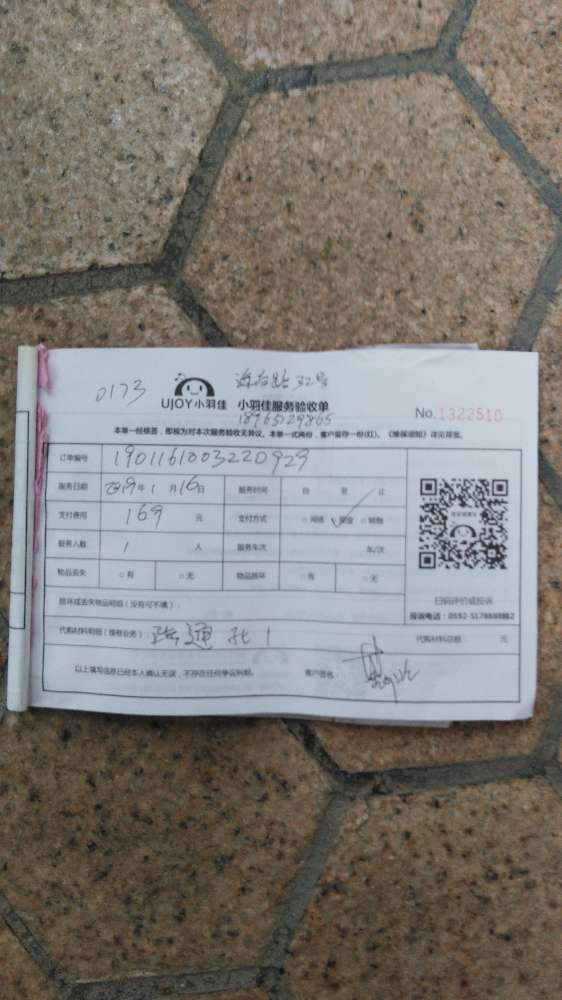 0173
UJOY小羽佳 小羽佳服务验收单
18965129865
No.1322510
本单一经核签，即视为对本次服务验收无异议。本单一式两份，客户留存一份(红)。《维保须知》详见背面。
订单编号 1901161003220929
服务日期 2019年1月16日 服务时间 自 至 止
支付费用 169 元 支付方式 网络 ✓现金 转账
服务人数 1 人 服务车次 车/次
物品丢失 □有 □无 物品损坏 □有 □无
扫码评价或投诉
损坏或丢失物品明细（没有可不填）：
投诉电话：0592-5178698转2
代购材料明细（维修业务）： 疏通孔1 代购材料总额： 元
以上填写信息已经本人确认无误，不存在任何争议纠纷。 客户签名：